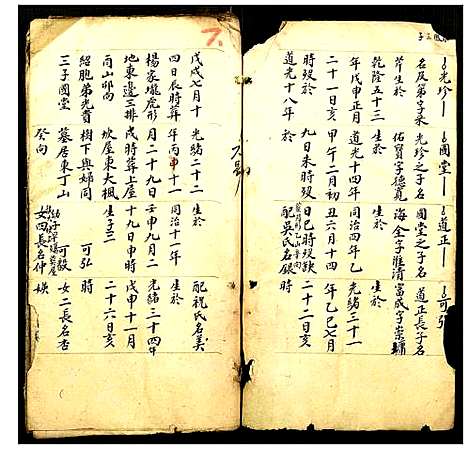 光珍 國堂 道正 可弘
名及弟字泉 光珍之子名 國堂之子名 道正長子名
芹生於 佑賢字德寬 海金字淮清 富成字崇墉
乾隆五十三 生於 生於 生於
年戊申正月 道光十四年 同治四年乙 光緒三十一
二十一日亥 甲午二月初 丑六月十四 年乙巳七月
時歿於 九日未時歿 日巳時歿 十二日亥
道光十八年 於 配吳氏名銀 時
戊戌七月十 光緒二十二 生於 配祝氏名美
四日辰時葬 年丙申十一 同治十一年 生於
楊家壠虎形 月二十九日 壬申九月二 光緒三十四年
地東邊三排 時葬上屋 十九日申時 戊申十一月
向 坡屋東大楓 生子三 二十六日亥
紹胞弟光貴 樹下與婦同 可弘 時
三子國堂 墓居東丁山 可毅 女二長名杏
癸向 女四長名仲 媖